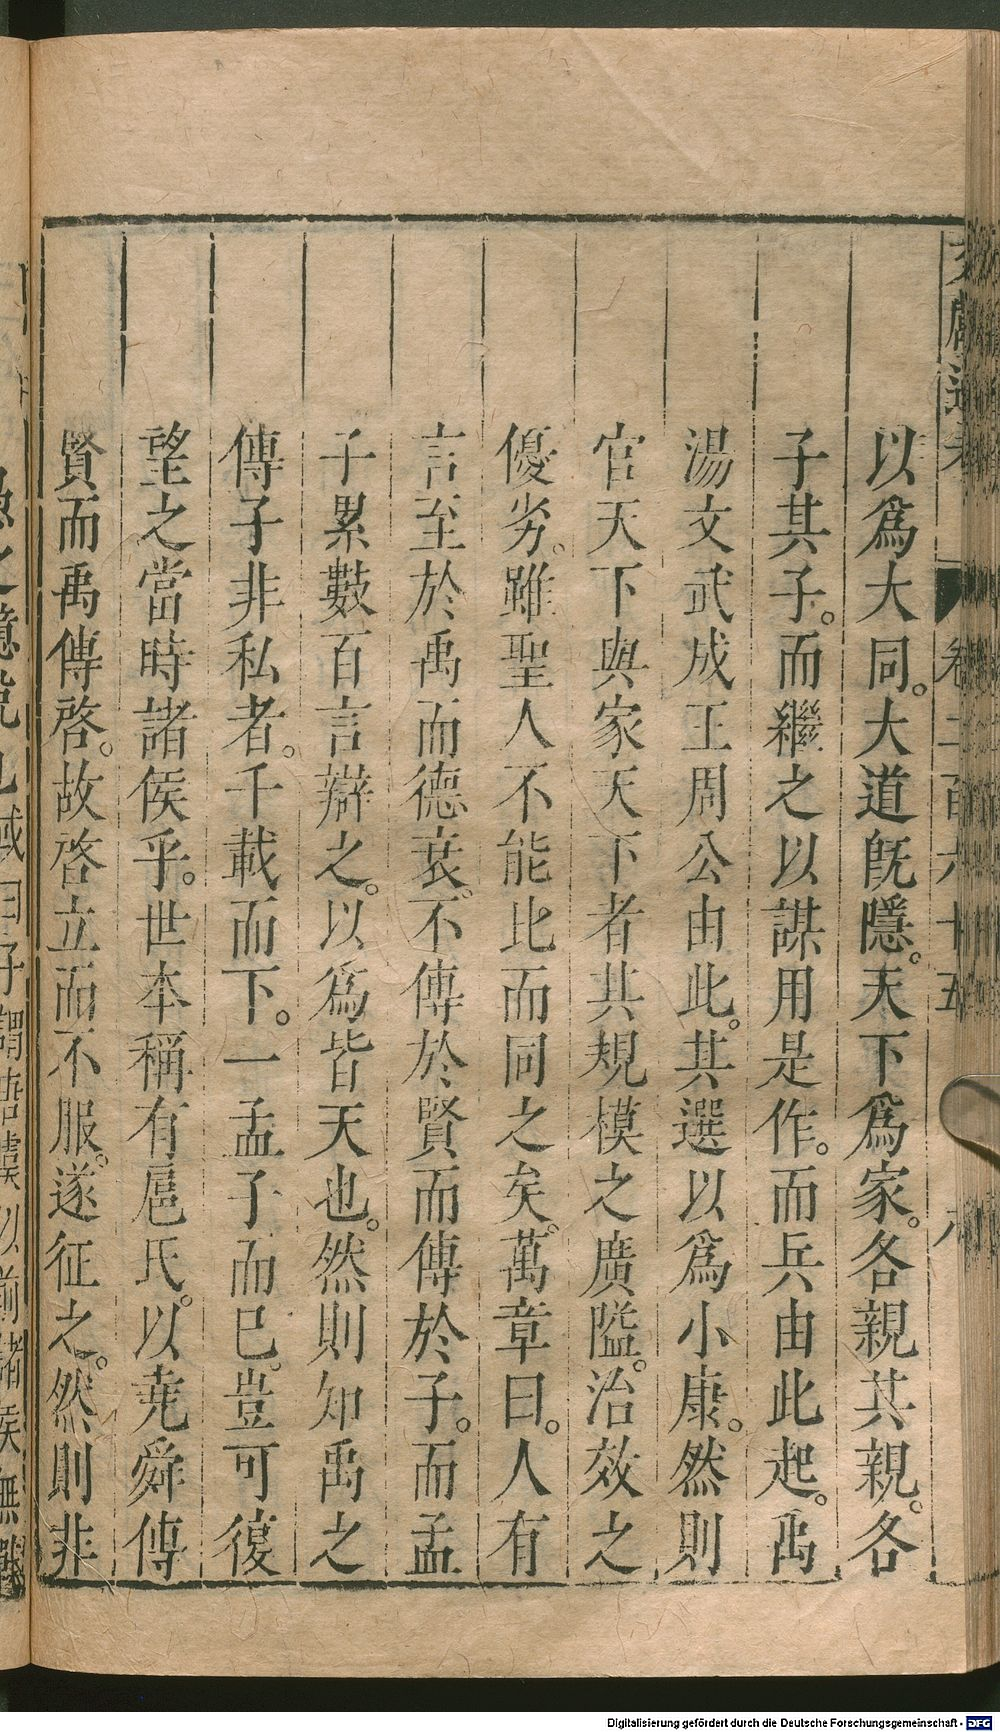 以爲大同。大道旣隱。天下爲家。各親其親。各
子其子。而繼之以謀用是作。而兵由此起。禹
湯文武成王周公由此。其選以爲小康。然則
官天下與家天下者其規模之廣隘。治效之
優劣。雖聖人不能比而同之矣。萬章曰。人有
言至於禹而德衰。不傳於賢而傳於子。而孟
子累數百言辯之。以爲皆天也。然則知禹之
傳子非私者。千載而下。一孟子而已。豈可復
望之當時諸侯乎。世本稱有扈氏。以堯舜傳
賢而禹傳啓。故啓立而不服。遂征之。然則非
卷二百六十五
八
Digitalisierung gefördert durch die Deutsche Forschungsgemeinschaft - DFG